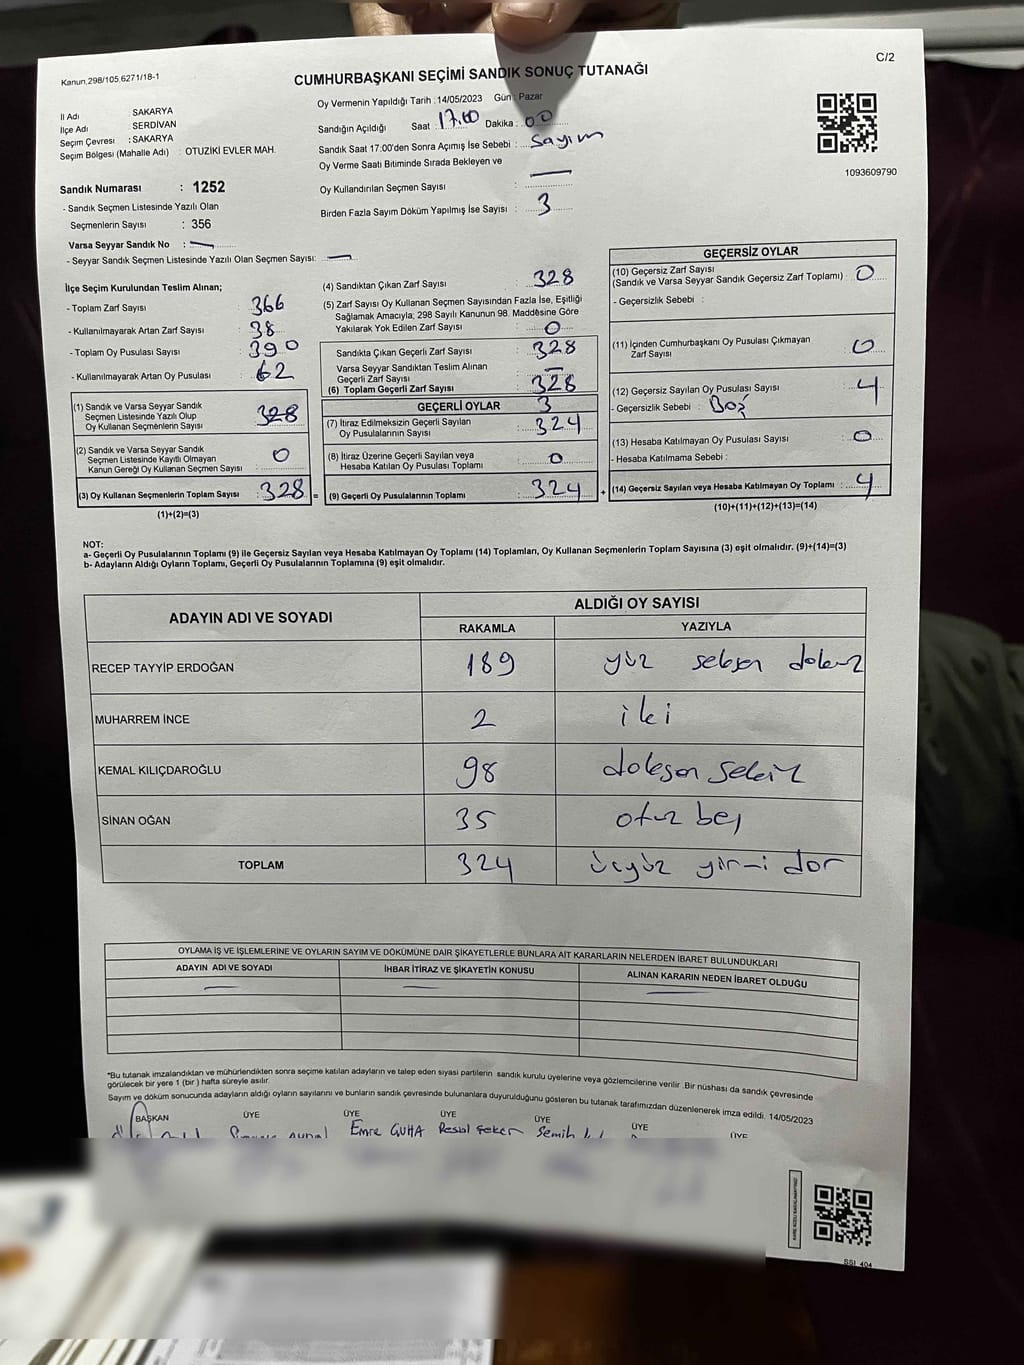 Kanun,298/105,6271/18-1
C/2
CUMHURBAŞKANI SEÇİMİ SANDIK SONUÇ TUTANAĞI
İl Adı : SAKARYA
İlçe Adı : SERDİVAN
Seçim Çevresi : SAKARYA
Seçim Bölgesi (Mahalle Adı) : OTUZİKİ EVLER MAH.
Sandık Numarası : 1252
- Sandık Seçmen Listesinde Yazılı Olan
Seçmenlerin Sayısı : 356
Varsa Seyyar Sandık No : —
- Seyyar Sandık Seçmen Listesinde Yazılı Olan Seçmen Sayısı: —
Oy Vermenin Yapıldığı Tarih :14/05/2023 Gün : Pazar
Sandığın Açıldığı Saat : 17.00 Dakika : 00
Sandık Saat 17:00'den Sonra Açımış İse Sebebi : Sayım
Oy Verme Saati Bitiminde Sırada Bekleyen ve
Oy Kullandırılan Seçmen Sayısı : —
Birden Fazla Sayım Döküm Yapılmış İse Sayısı : 3
1093609790
İlçe Seçim Kurulundan Teslim Alınan;
- Toplam Zarf Sayısı : 366
- Kullanılmayarak Artan Zarf Sayısı : 38
- Toplam Oy Pusulası Sayısı : 390
- Kullanılmayarak Artan Oy Pusulası : 62
(1) Sandık ve Varsa Seyyar Sandık
Seçmen Listesinde Yazılı Olup
Oy Kullanan Seçmenlerin Sayısı : 328
(2) Sandık ve Varsa Seyyar Sandık
Seçmen Listesinde Kayıtlı Olmayan
Kanun Gereği Oy Kullanan Seçmen Sayısı : 0
(3) Oy Kullanan Seçmenlerin Toplam Sayısı : 328 =
(1)+(2)=(3)
(4) Sandıktan Çıkan Zarf Sayısı : 328
(5) Zarf Sayısı Oy Kullanan Seçmen Sayısından Fazla İse, Eşitliği
Sağlamak Amacıyla; 298 Sayılı Kanunun 98. Maddesine Göre
Yakılarak Yok Edilen Zarf Sayısı : 0
Sandıkta Çıkan Geçerli Zarf Sayısı : 328
Varsa Seyyar Sandıktan Teslim Alınan
Geçerli Zarf Sayısı : —
(6) Toplam Geçerli Zarf Sayısı : 328
GEÇERLİ OYLAR 3
(7) İtiraz Edilmeksizin Geçerli Sayılan
Oy Pusulalarının Sayısı : 324
(8) İtiraz Üzerine Geçerli Sayılan veya
Hesaba Katılan Oy Pusulası Toplamı : 0
(9) Geçerli Oy Pusulalarının Toplamı : 324 +
GEÇERSİZ OYLAR
(10) Geçersiz Zarf Sayısı
(Sandık ve Varsa Seyyar Sandık Geçersiz Zarf Toplamı) : 0
- Geçersizlik Sebebi :
(11) İçinden Cumhurbaşkanı Oy Pusulası Çıkmayan
Zarf Sayısı : 0
(12) Geçersiz Sayılan Oy Pusulası Sayısı : 4
- Geçersizlik Sebebi : Boş
(13) Hesaba Katılmayan Oy Pusulası Sayısı : 0
- Hesaba Katılmama Sebebi :
(14) Geçersiz Sayılan veya Hesaba Katılmayan Oy Toplamı : 4
(10)+(11)+(12)+(13)=(14)
NOT:
a- Geçerli Oy Pusulalarının Toplamı (9) ile Geçersiz Sayılan veya Hesaba Katılmayan Oy Toplamı (14) Toplamları, Oy Kullanan Seçmenlerin Toplam Sayısına (3) eşit olmalıdır. (9)+(14)=(3)
b- Adayların Aldığı Oyların Toplamı, Geçerli Oy Pusulalarının Toplamına (9) eşit olmalıdır.
ADAYIN ADI VE SOYADI ALDIĞI OY SAYISI
RAKAMLA YAZIYLA
RECEP TAYYİP ERDOĞAN 189 yüz seksen dokuz
MUHARREM İNCE 2 iki
KEMAL KILIÇDAROĞLU 98 doksan sekiz
SİNAN OĞAN 35 otuz beş
TOPLAM 324 üçyüz yirmi dör
OYLAMA İŞ VE İŞLEMLERİNE VE OYLARIN SAYIM VE DÖKÜMÜNE DAİR ŞİKAYETLERLE BUNLARA AİT KARARLARIN NELERDEN İBARET BULUNDUKLARI
ADAYIN ADI VE SOYADI İHBAR İTİRAZ VE ŞİKAYETİN KONUSU ALINAN KARARIN NEDEN İBARET OLDUĞU
— — —
*Bu tutanak imzalandıktan ve mühürlendikten sonra seçime katılan adayların ve talep eden siyasi partilerin sandık kurulu üyelerine veya gözlemcilerine verilir .Bir nüshası da sandık çevresinde
görülecek bir yere 1 (bir ) hafta süreyle asılır.
Sayım ve döküm sonucunda adayların aldığı oyların sayılarını ve bunların sandık çevresinde bulunanlara duyurulduğunu gösteren bu tutanak tarafımızdan düzenlenerek imza edildi. 14/05/2023
BAŞKAN ÜYE ÜYE ÜYE ÜYE ÜYE ÜYE
Emre GUHA Resul Şeker Semih
SSI 404